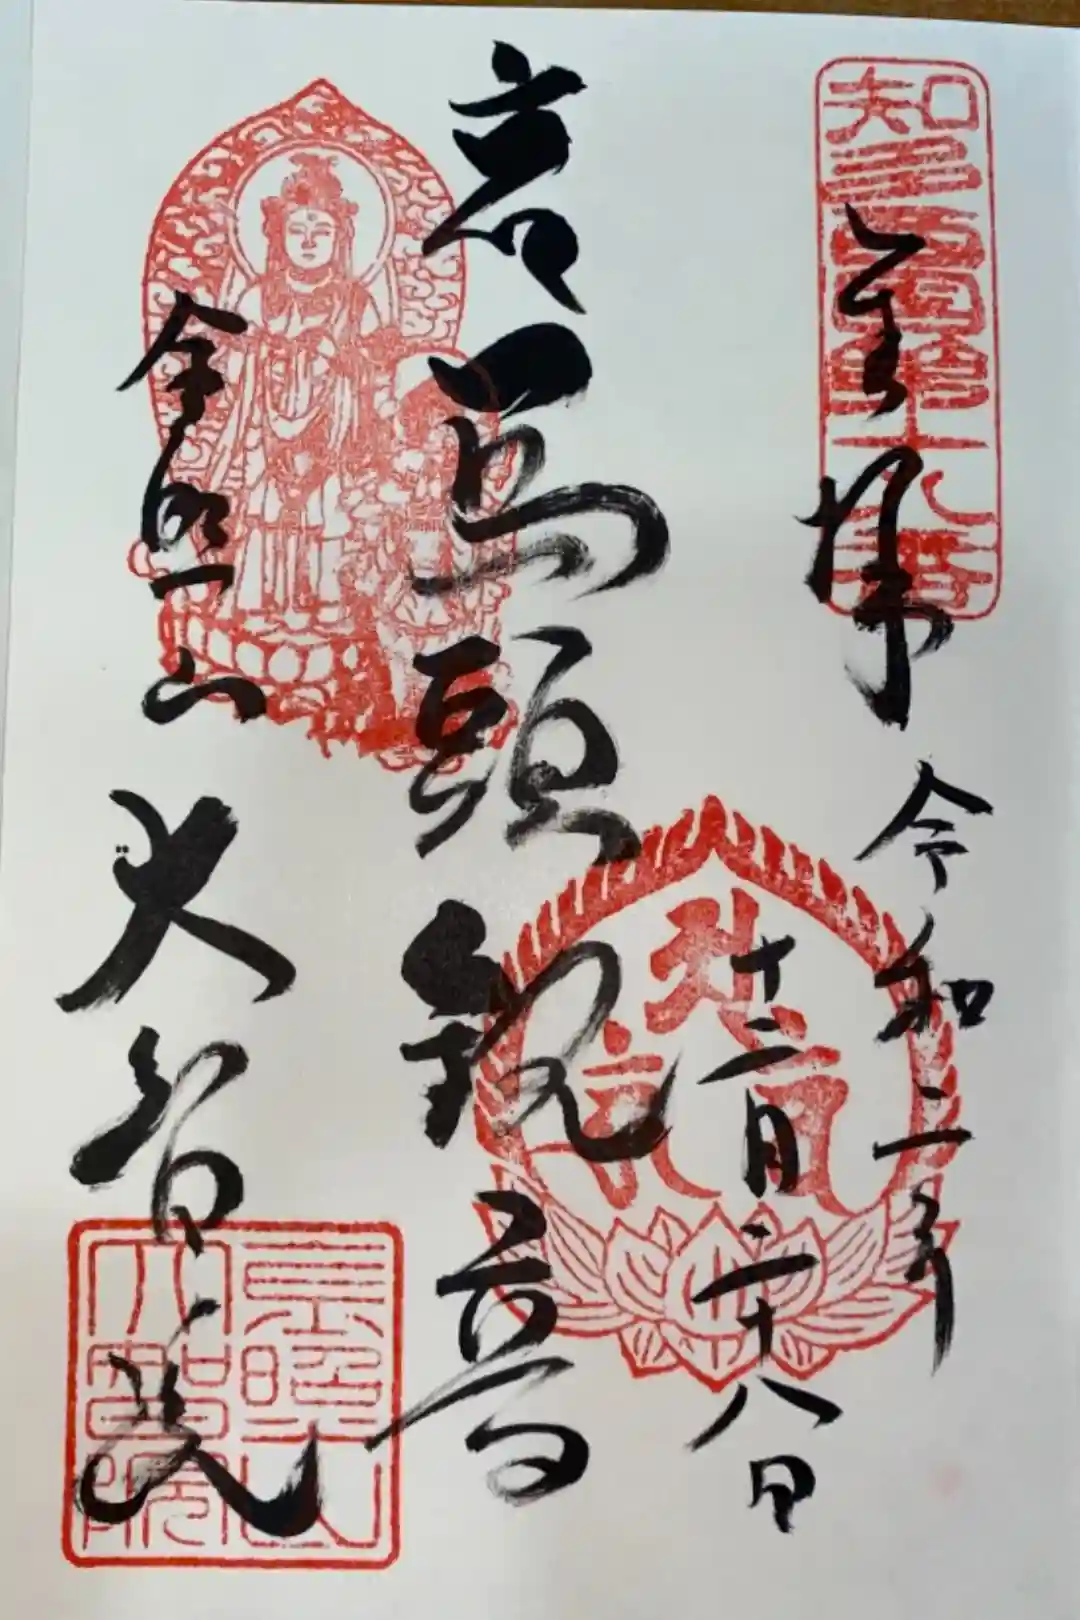 知多西国第十九番
奉拝 令和二年
十二月二十八日
馬頭観音
金照山 大智院
金照山
大智院